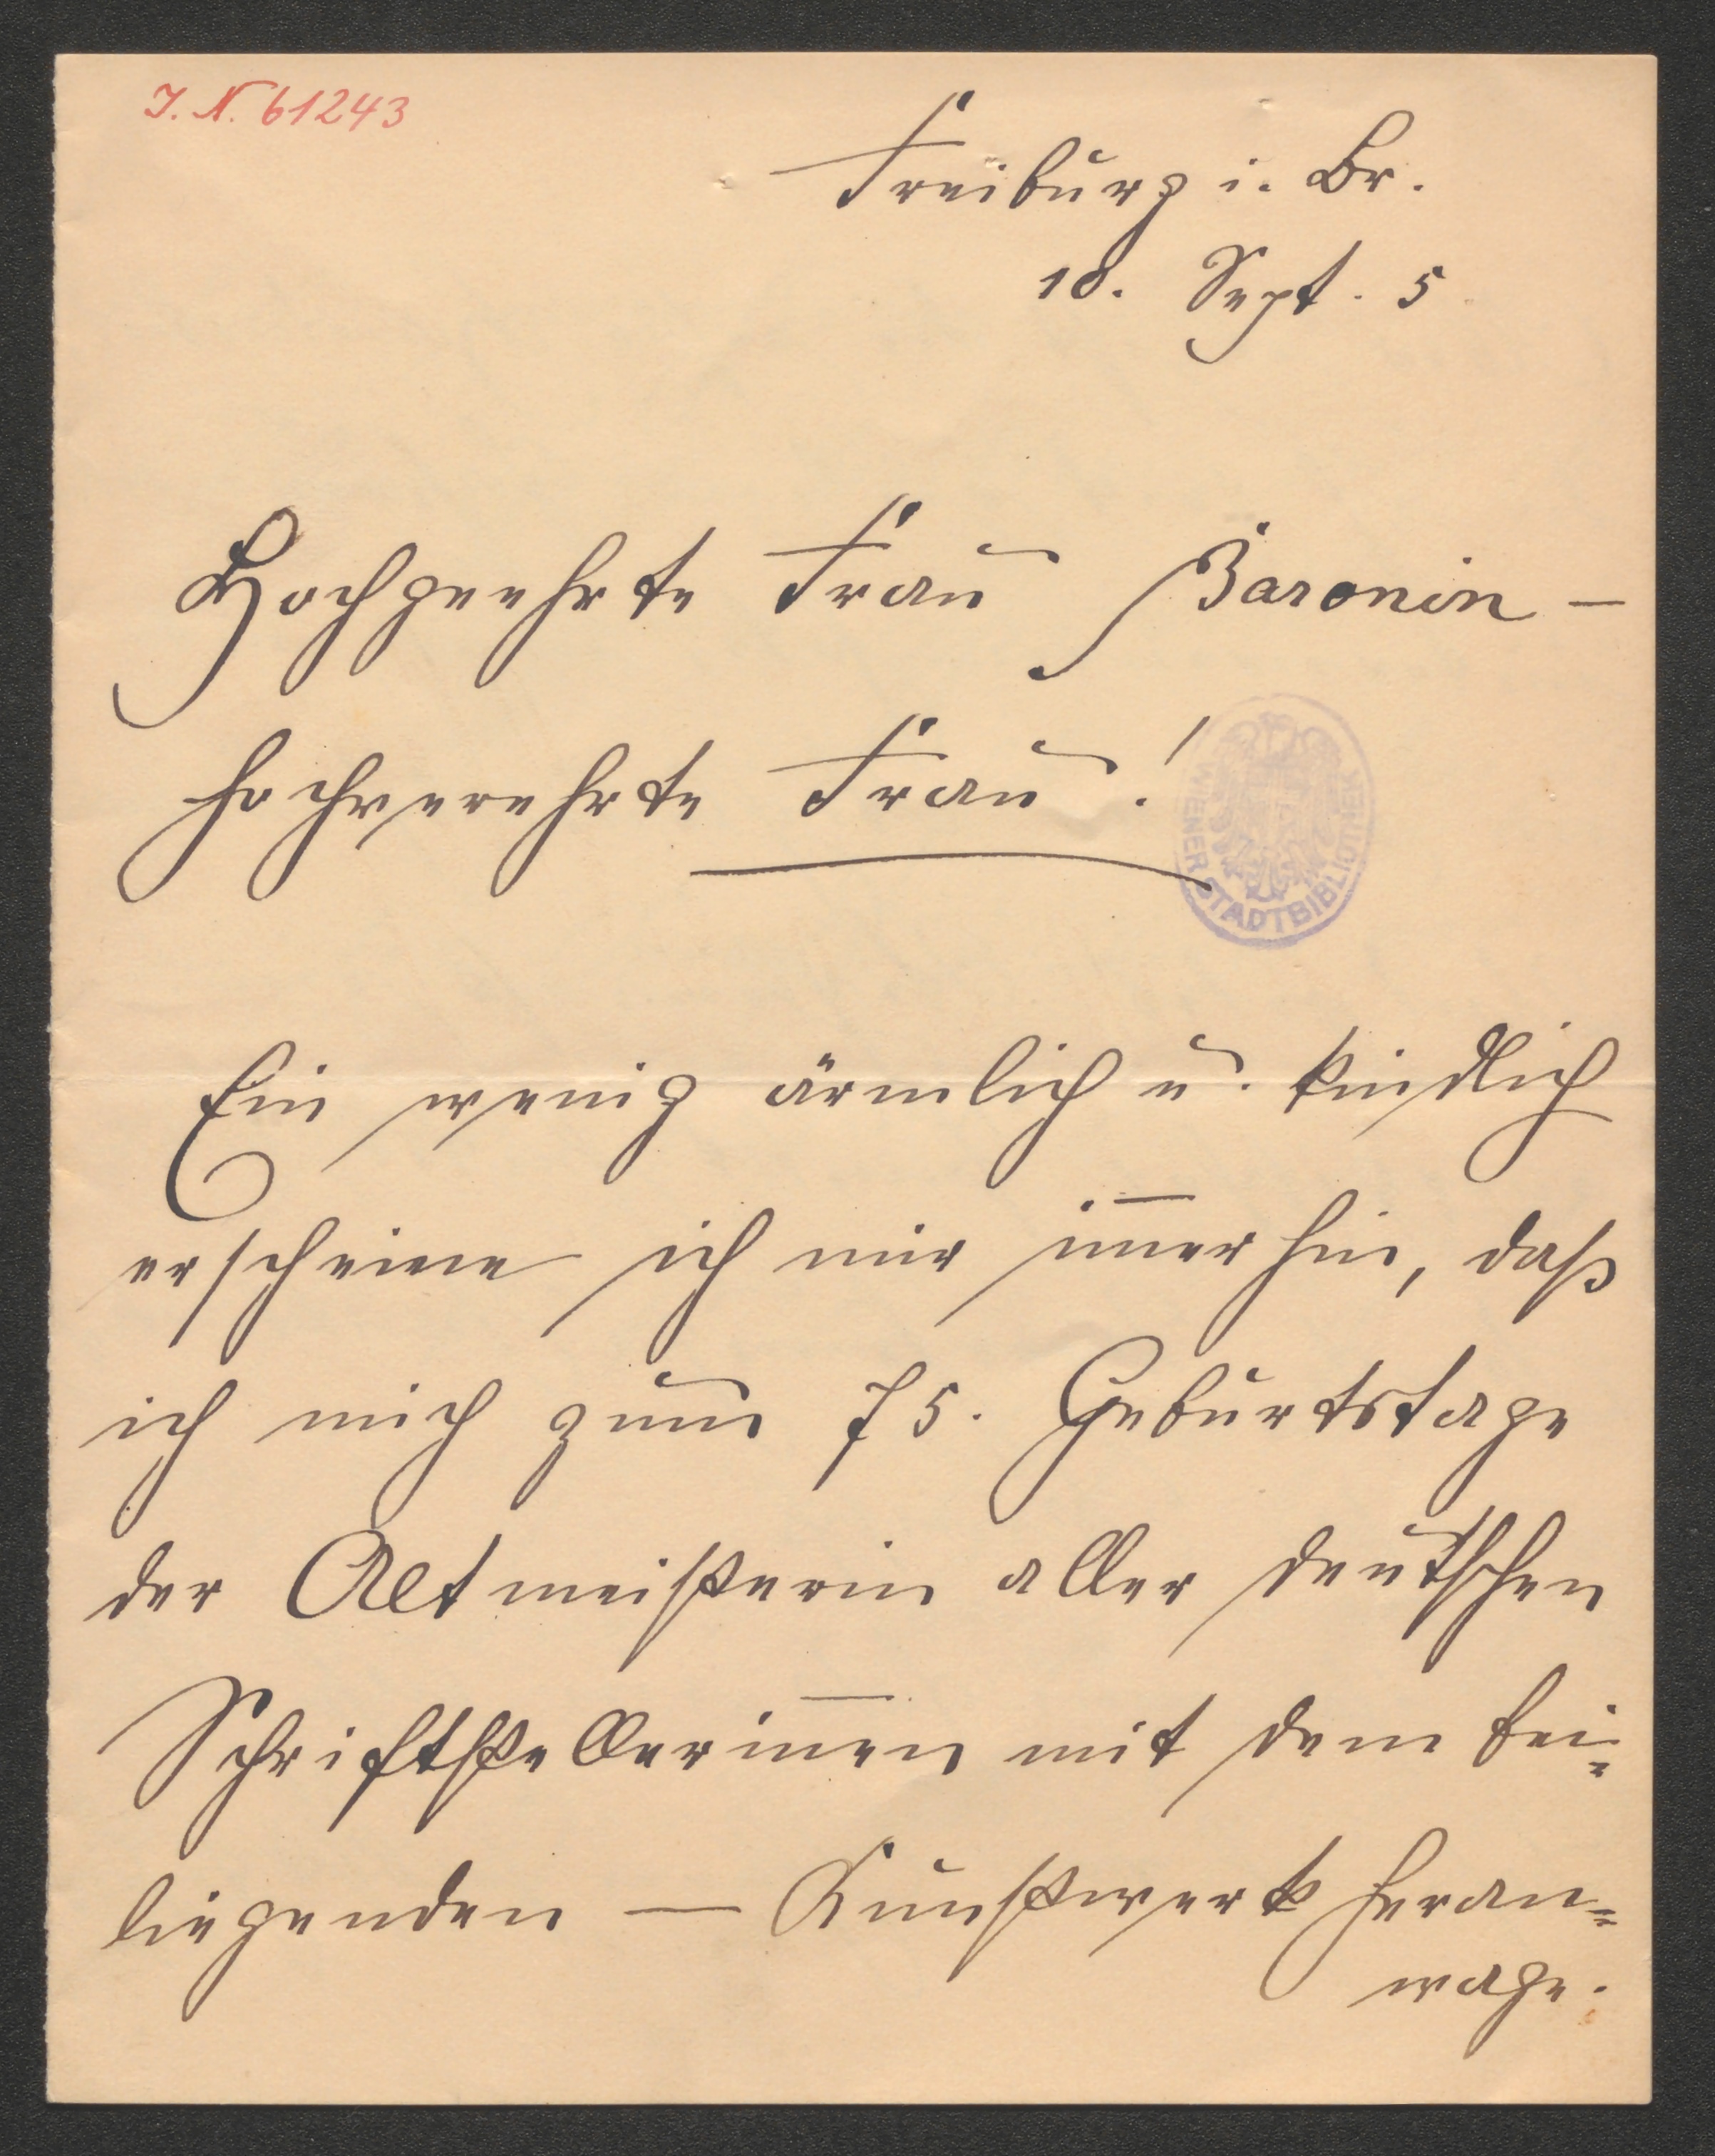 I. N. 61243
Freiburg i. Br.
10. Sept. 5
Hochgeehrte Frau Baronin –
hochverehrte Frau!
WIENER STADTBIBLIOTHEK
Ein wenig ärmlich u. kindlich
erscheine ich mir im̅erhin, daß
ich mich zum 75. Geburtstage
der Altmeisterin aller deutschen
Schriftstellerin̅en mit dem bei-
liegenden — Kunstwerk heran=
wage.